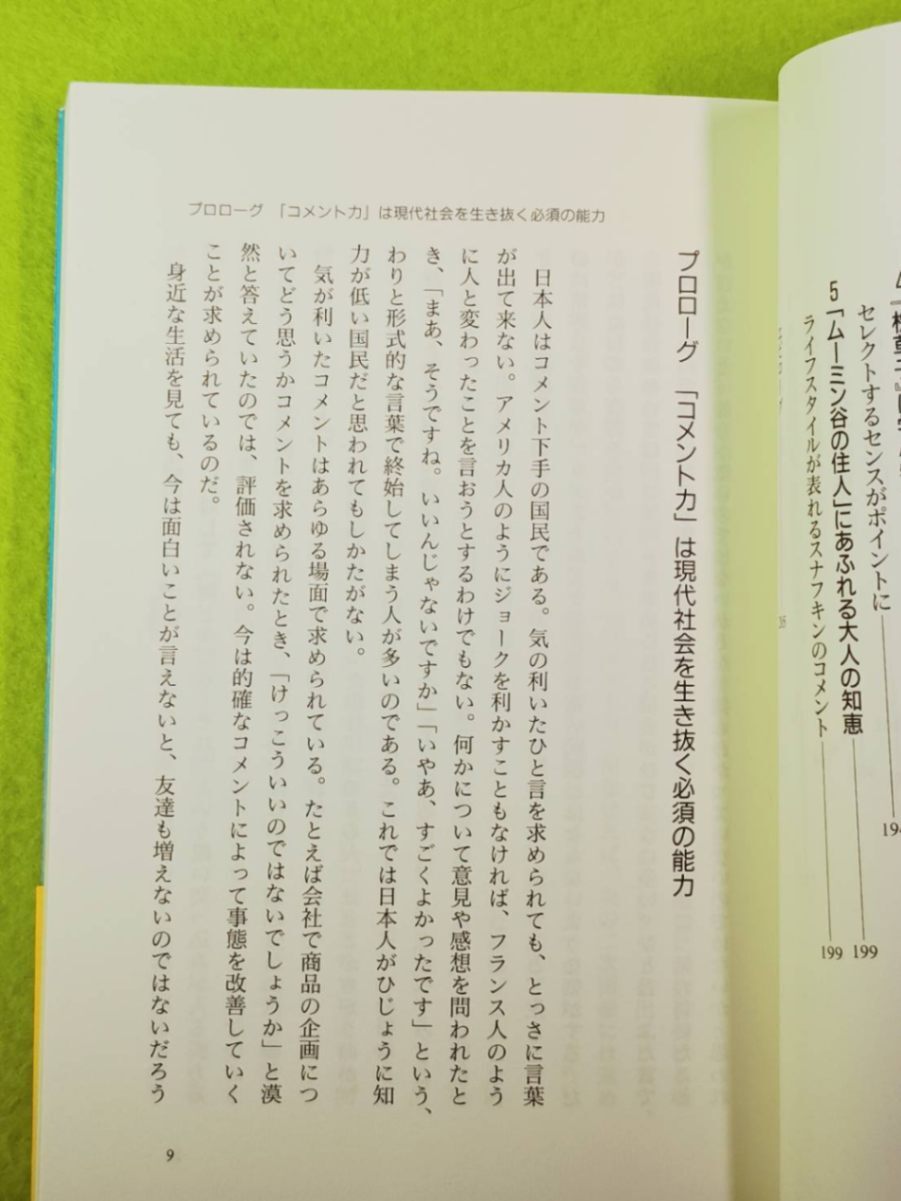 セレクトするセンスがポイントに
194
5 「ムーミン谷の住人」にあふれる大人の知恵
199
ライフスタイルが表れるスナフキンのコメント
199
プロローグ 「コメント力」は現代社会を生き抜く必須の能力
プロローグ 「コメント力」は現代社会を生き抜く必須の能力
日本人はコメント下手の国民である。気の利いたひと言を求められても、とっさに言葉
が出て来ない。アメリカ人のようにジョークを利かすこともなければ、フランス人のよう
に人と変わったことを言おうとするわけでもない。何かについて意見や感想を問われたと
き、「まあ、そうですね。いいんじゃないですか」「いやあ、すごくよかったです」という、
わりと形式的な言葉で終始してしまう人が多いのである。これでは日本人がひじょうに知
力が低い国民だと思われてもしかたがない。
気が利いたコメントはあらゆる場面で求められている。たとえば会社で商品の企画につ
いてどう思うかコメントを求められたとき、「けっこういいのではないでしょうか」と漠
然と答えていたのでは、評価されない。今は的確なコメントによって事態を改善していく
ことが求められているのだ。
身近な生活を見ても、今は面白いことが言えないと、友達も増えないのではないだろう
9